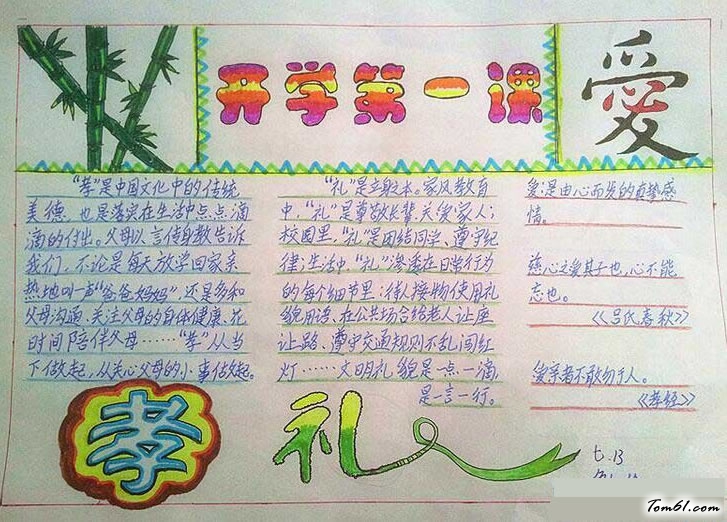 开学第一课
愛
“孝”是中国文化中的传统
美德，也是落实在生活中点点滴
滴的付出。父母以言传身教告诉
我们，不论是每天放学回家亲
热地叫一声“爸爸妈妈”，还是多和
父母沟通，关注父母的身体健康、花
时间陪伴父母……“孝”从当
下做起，从关心父母的小事做起。
孝
“礼”是立身之本。家风教育
中，“礼”是尊敬长辈、关爱家人；
校园里，“礼”是团结同学、遵守纪
律；生活中，“礼”渗透在日常行为
的每个细节里：待人接物使用礼
貌用语、在公共场合给老人让座
让路、遵守交通规则不乱闯红
灯……文明礼貌是一点一滴，
是一言一行。
礼
爱：是由心而发的真挚感
情。
慈心之爱其子也，心不能
忘也。
《吕氏春秋》
爱亲者不敢勿于人。
《孝经》
七.13
Tom61.com